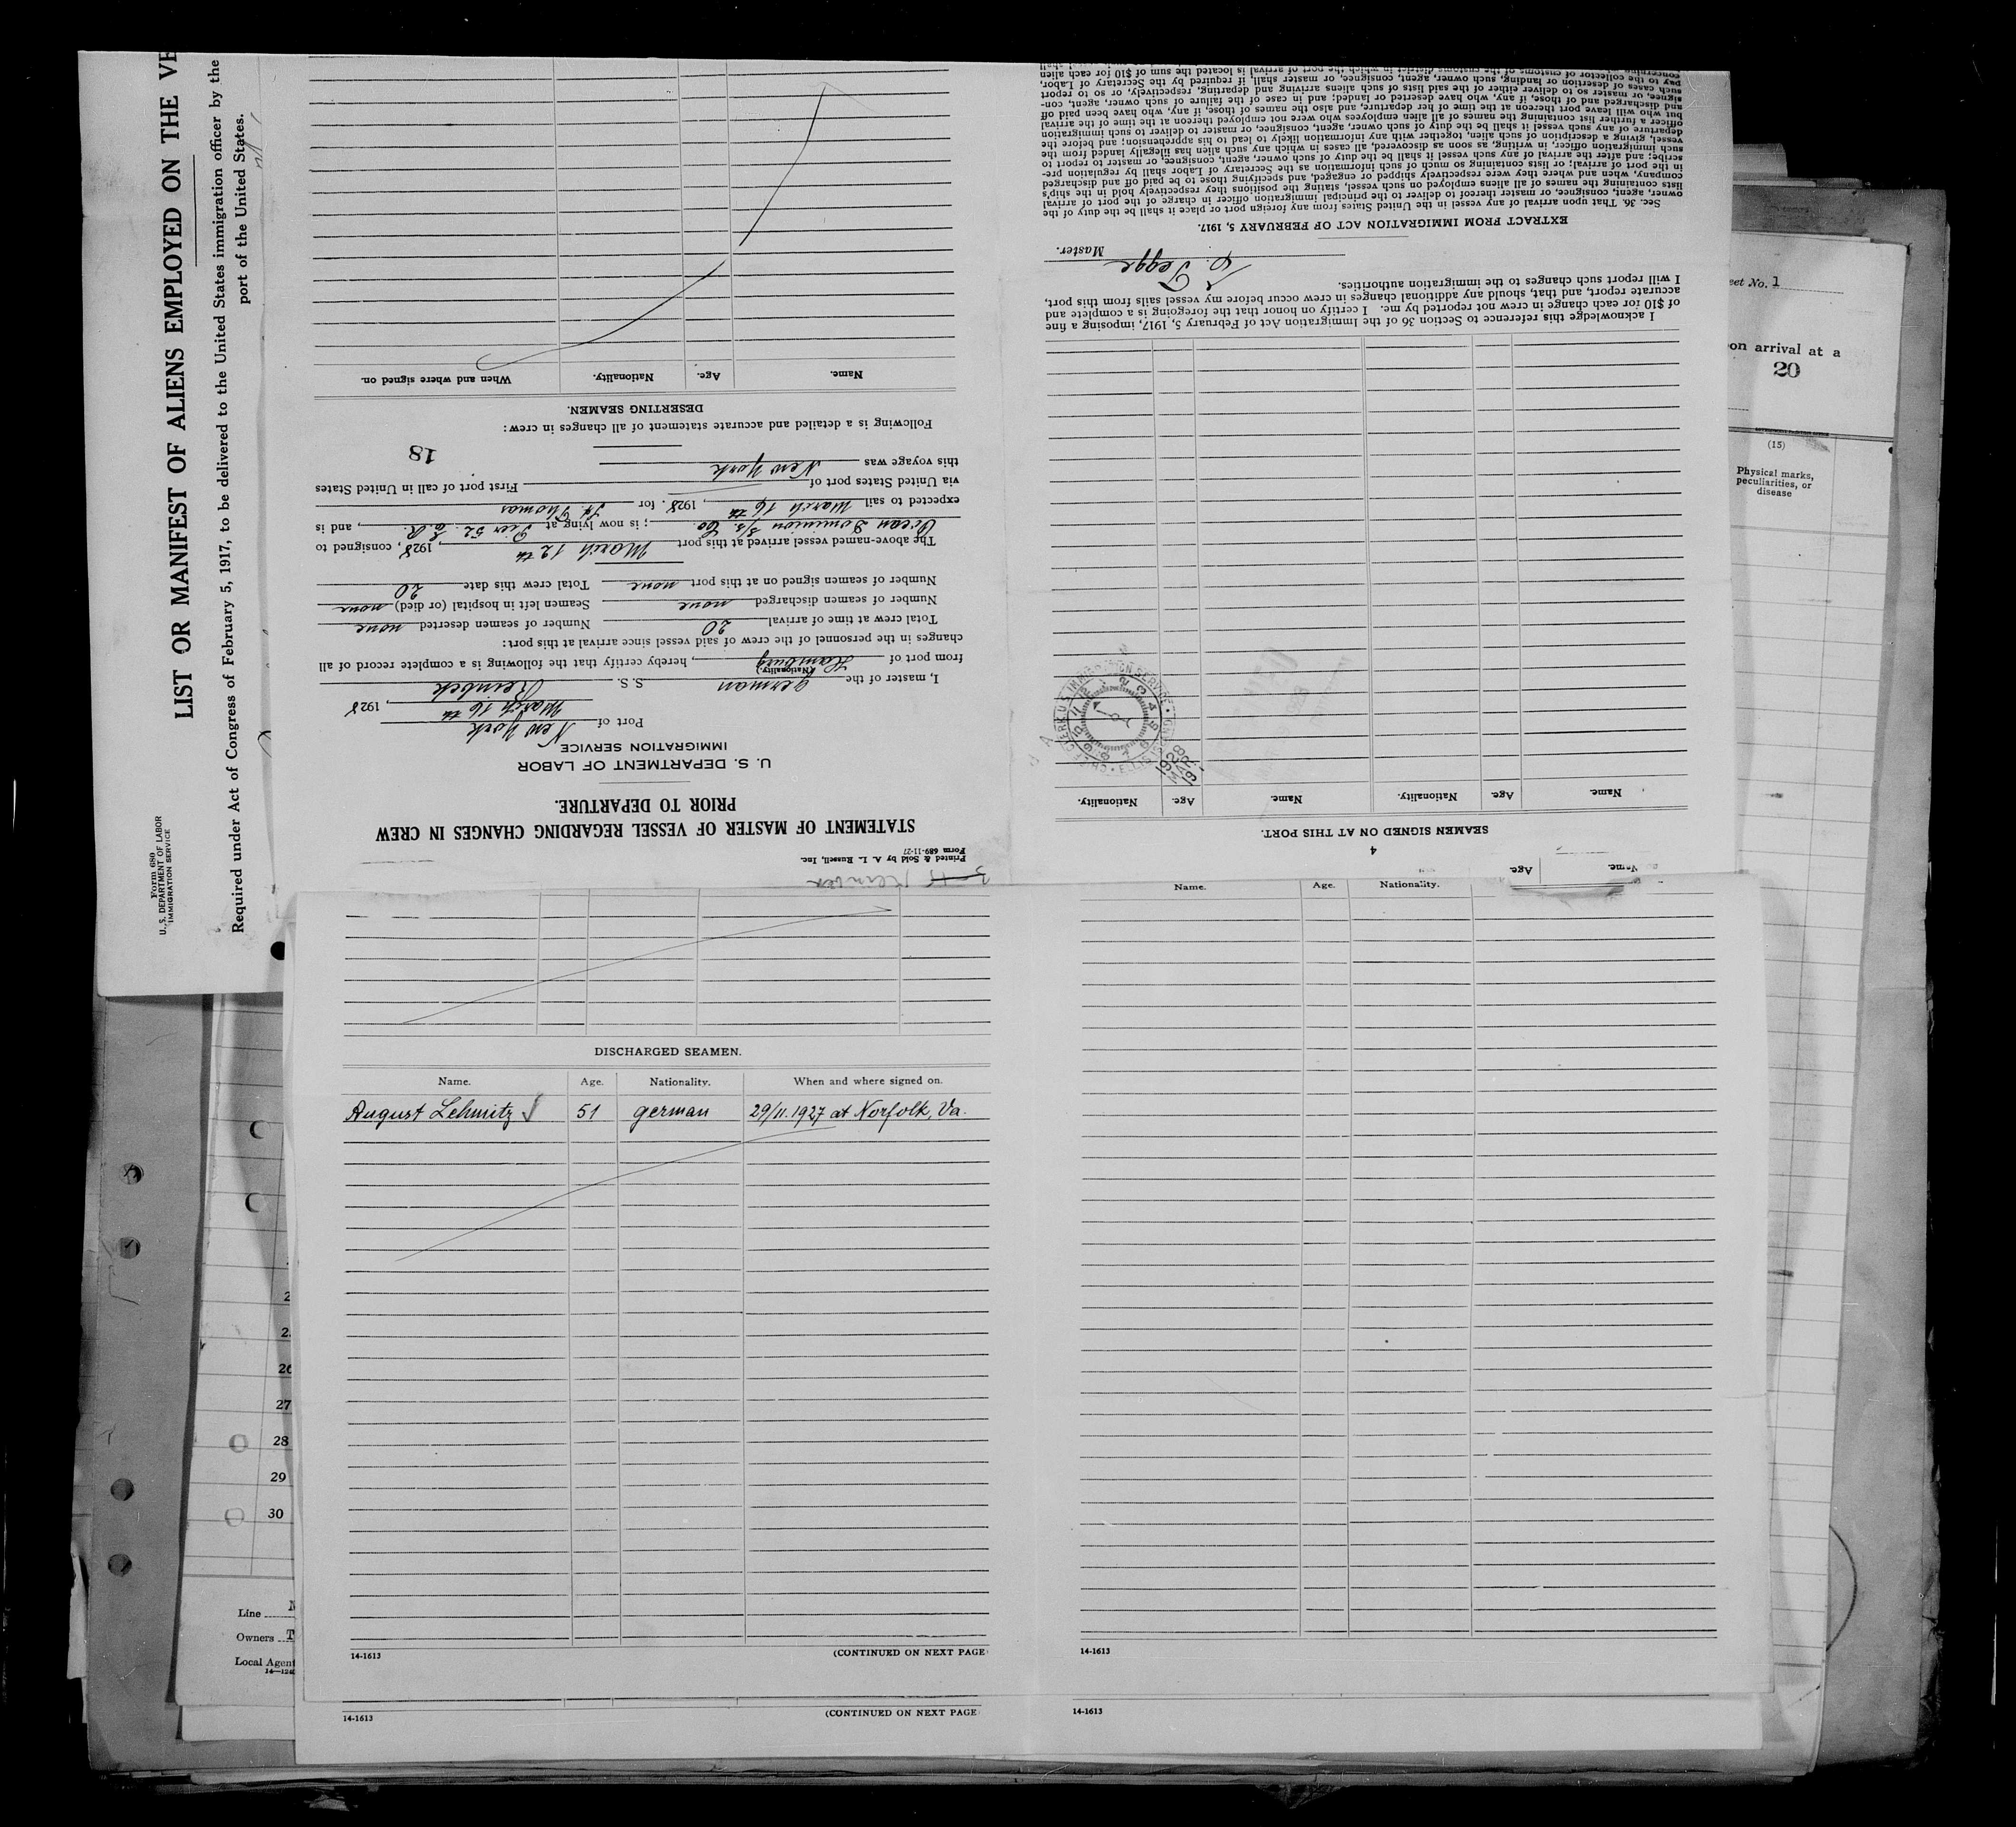 LIST OR MANIFEST OF ALIENS EMPLOYED ON THE VE
Required under Act of Congress of February 5, 1917, to be delivered to the United States immigration officer by the
port of the United States.
Form 680
U. S. DEPARTMENT OF LABOR
IMMIGRATION SERVICE
Printed & Sold by A. L. Russell, Inc.
Form 689-11-27
STATEMENT OF MASTER OF VESSEL REGARDING CHANGES IN CREW
PRIOR TO DEPARTURE.
U. S. DEPARTMENT OF LABOR
IMMIGRATION SERVICE
Port of New York
March 16 th, 1928
I, master of the german S. S. Reinbek
(Nationality.)
from port of Hamburg, hereby certify that the following is a complete record of all
changes in the personnel of the crew of said vessel since arrival at this port:
Total crew at time of arrival 20 Number of seamen deserted none
Number of seamen discharged none Seamen left in hospital (or died) none
Number of seamen signed on at this port none Total crew this date 20
The above-named vessel arrived at this port March 12 th, 1928, consigned to
Ocean Dominion S/S. Co.; is now lying at Pier 52. E. R., and is
expected to sail March 16 th, 1928. for St. Thomas
via United States port of First port of call in United States
this voyage was New York
18
Following is a detailed and accurate statement of all changes in crew:
DESERTING SEAMEN.
Name. Age. Nationality. When and where signed on.
Name. Age.
4
SEAMEN SIGNED ON AT THIS PORT.
Name. Age. Nationality. Name. Age. Nationality.
1928
MAR
I acknowledge this reference to Section 36 of the Immigration Act of February 5, 1917, imposing a fine
of $10 for each change in crew not reported by me. I certify on honor that the foregoing is a complete and
accurate report, and that, should any additional changes in crew occur before my vessel sails from this port,
I will report such changes to the immigration authorities.
Tegge
Master.
EXTRACT FROM IMMIGRATION ACT OF FEBRUARY 5, 1917.
Sec. 36. That upon arrival of any vessel in the United States from any foreign port or place it shall be the duty of the
owner, agent, consignee, or master thereof to deliver to the principal immigration officer in charge of the port of arrival
lists containing the names of all aliens employed on such vessel, stating the positions they respectively hold in the ship's
company, when and where they were respectively shipped or engaged, and specifying those to be paid off and discharged
in the port of arrival; or lists containing so much of such information as the Secretary of Labor shall by regulation pre-
scribe; and after the arrival of any such vessel it shall be the duty of such owner, agent, consignee, or master to report to
such immigration officer, in writing, as soon as discovered, all cases in which any such alien has illegally landed from the
vessel, giving a description of such alien, together with any information likely to lead to his apprehension; and before the
departure of any such vessel it shall be the duty of such owner, agent, consignee, or master to deliver to such immigration
officer a further list containing the names of all alien employees who were not employed thereon at the time of the arrival
but who will leave port thereon at the time of her departure, and also the names of those, if any, who have been paid off
and discharged and of those, if any, who have deserted or landed; and in case of the failure of such owner, agent, con-
signee, or master so to deliver either of the said lists of such aliens arriving and departing, respectively, or so to report
such cases of desertion or landing, such owner, agent, consignee or master shall, if required by the Secretary of Labor,
pay to the collector of customs of the customs district in which the port of arrival is located the sum of $10 for each alien
eet No. 1
on arrival at a
20
(15)
Physical marks,
peculiarities, or
disease
DISCHARGED SEAMEN.
Name. Age. Nationality. When and where signed on.
August Lehmitz 51 german 29/11.1927 at Norfolk, Va.
14-1613 (CONTINUED ON NEXT PAGE
14-1613 (CONTINUED ON NEXT PAGE
Name. Age. Nationality.
14-1613
14-1613
26
27
28
29
30
Line
Owners T
Local Agent